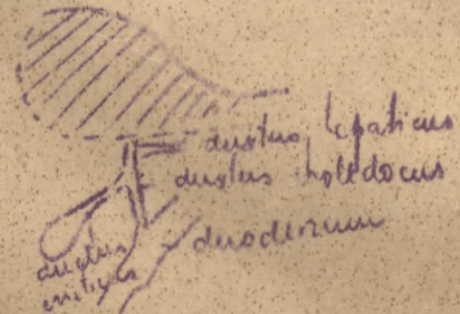 ductus hepaticus
ductus holedocus
duodenum
ductus
cisticus